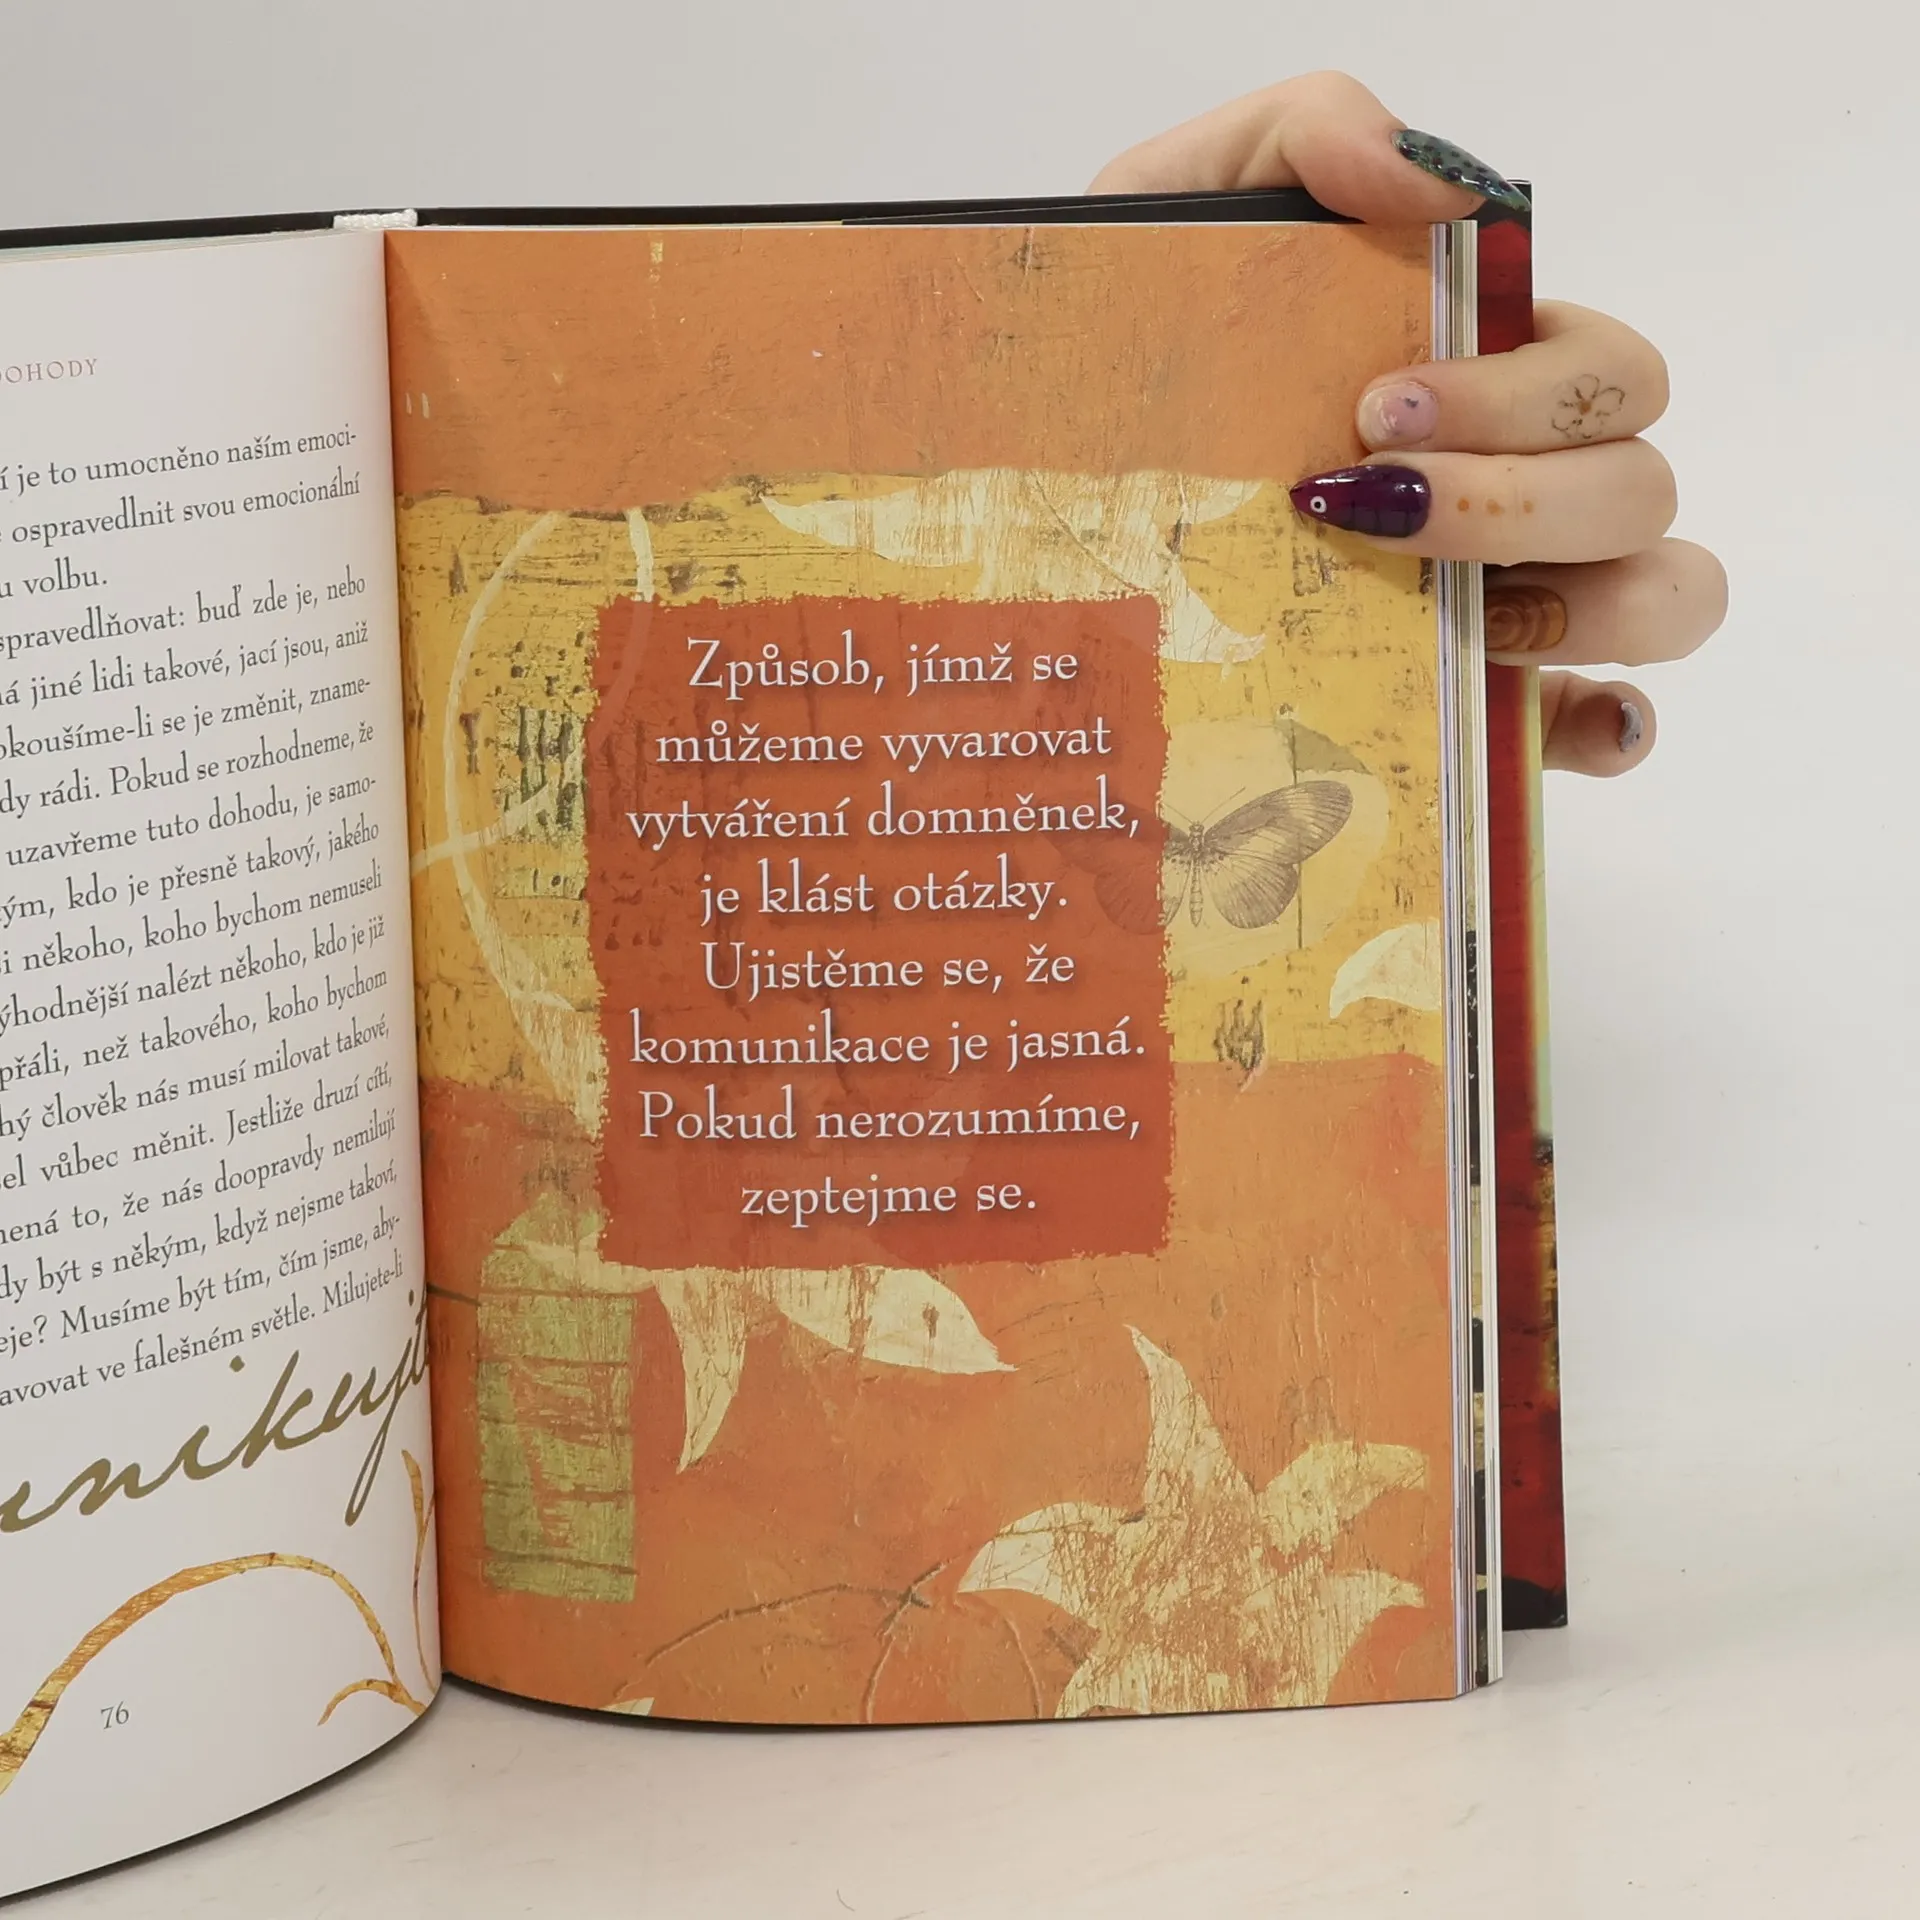 DOHODY
je to umocněno naším emoci-
ospravedlnit svou emocionální
volbu.
buď zde je, nebo
jiné lidi takové, jací jsou, aniž
se je změnit, zname-
rádi. Pokud se rozhodneme, že
uzavřeme tuto dohodu, je samo-
kdo je přesně takový, jakého
někoho, koho bychom nemuseli
nalézt někoho, kdo je již
přáli, než takového, koho bychom
člověk nás musí milovat takové,
vůbec měnit. Jestliže druzí cítí,
to, že nás doopravdy nemilují
být s někým, když nejsme takoví,
Musíme být tím, čím jsme, aby-
ve falešném světle. Milujete-li
76
Způsob, jímž se
můžeme vyvarovat
vytváření domněnek,
je klást otázky.
Ujistěme se, že
komunikace je jasná.
Pokud nerozumíme,
zeptejme se.